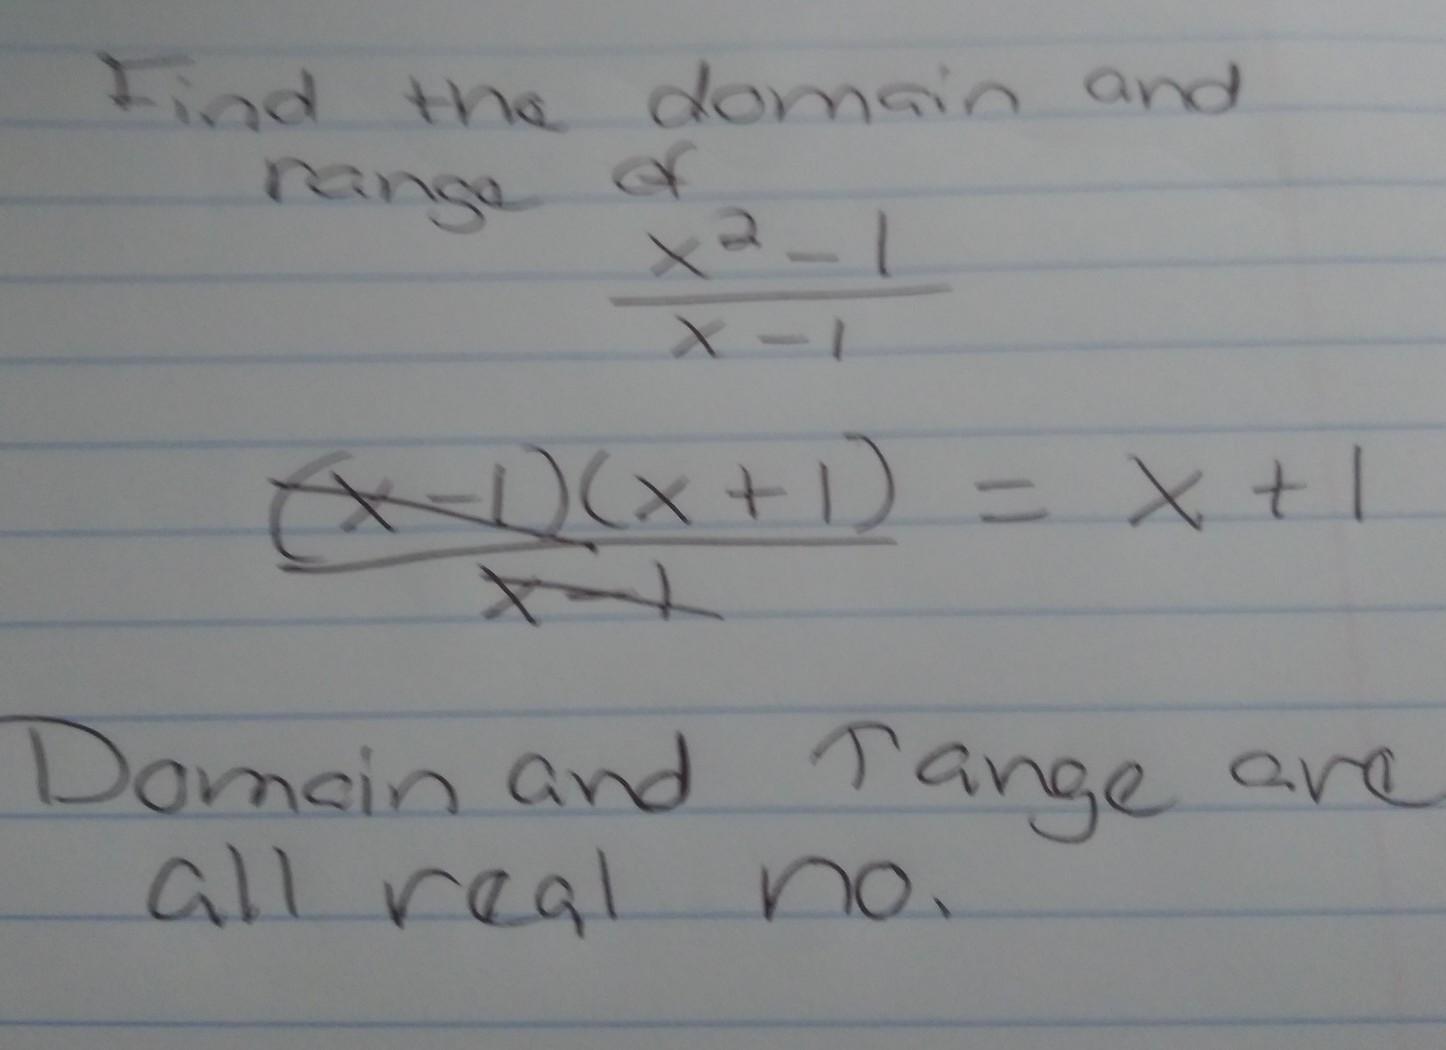 Find the domain and
range of
x² - 1
x - 1
(x-1)(x+1) = x + 1
x-1
Domain and range are
all real no.